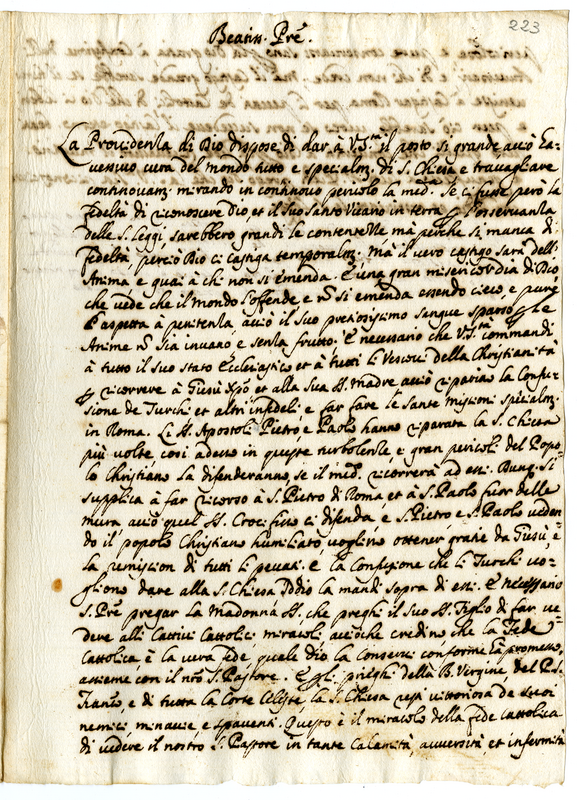 223
Beatis. Pre.
La Providenza di Dio dispose di dar à V. Stà il posto si grande acciò fa-
cessivo cura del mondo tutto e specialm. di S. Chiesa e travagliare
continouam. mirando in continovo pericolo la med. Se ci fusse però la
fedeltà di riconoscere Dio, et il suo Santo Vicario in terra, e l'osservanza
delle S. Leggi sarebbero grandi le contentezze mà perche si manca di
fedeltà, perciò Dio ci castiga temporalm. mà il vero castigo sarà dell'
Anima e guai à chi non si emenda. È una gran misericordia di Dio
che vede che il mondo l'offende e nõ si emenda essendo cieco e pure
l'aspetta à penitenza, acciò il suo pretiosissimo sangue sparso p le
Anime nõ sia invano e senza frutto. È necessario che V. Stà commandi
à tutto il suo stato Ecclesiastico et à tutti li Vescovi della Christianità
p ricorrere à Giesù Xpõ et alla sua S. Madre acciò ripariano la Confu-
sione de Turchi et altri infedeli, e far fare le Sante missioni specialm.
in Roma. Li S. Apostoli Pietro, e Paolo hanno riparata la S. Chiesa
più volte così adesso in queste turbolenze, e gran pericoli del Popo-
lo Christiano la difenderanno, se il med. ricorrerà ad essi. Bunq. si
supplica à far ricorso à S. Pietro di Roma, et à S. Paolo fuor delle
mura acciò quel S. Crocifisso ci difenda, e S. Pietro e S. Paolo veden-
do il popolo Christiano humiliato, voglino ottener gratie da Giesù, e
la remission di tutti li peccati. e la Confusione che li Turchi vo-
gliono dare alla S. Chiesa Iddio la mandi sopra di essi. È necessario
S. Prẽ pregar la Madonna S. che preghi il suo S. Figlio di far ve-
dere alli Cattivi Cattolici miracoli acciòche credino che la Fede
Cattolica è la vera fede, quale Dio la Conservi conforme hà promesso,
assieme con il nrõ S. Pastore. E p li prieghi della B. Vergine, del P. S.
Franco, e di tutta la Corte Celeste, la S. Chiesa resti vittoriosa de suoi
nemici, minaccie, e spaventi. Questo è il miracolo della fede Cattolica
di vedere il nostro S. Pastore in tante Calamità, avversità, et infermità